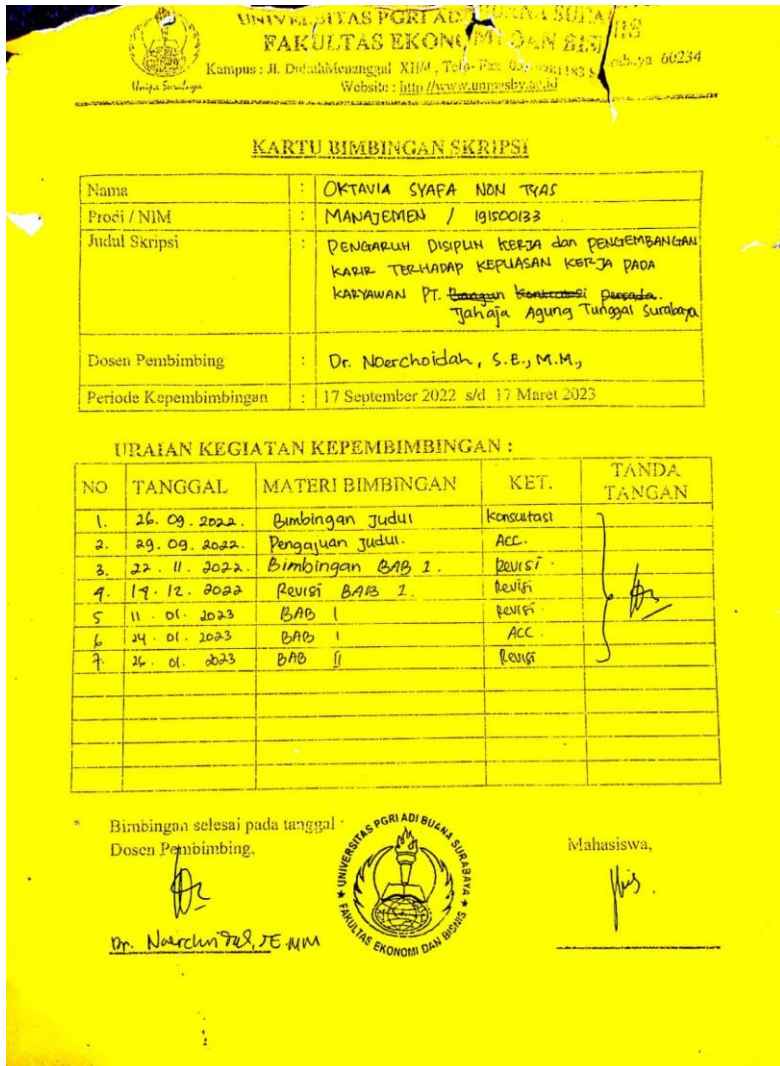 UNIVERSITAS PGRI ADI BUANA SURA
FAKULTAS EKONOMI DAN BISNIS
Kampus : Jl. DukuhMenanggal XII/4, Telp-Fax 60234
Website : http://www.unipasby.ac.id
Unipa Surabaya
KARTU BIMBINGAN SKRIPSI
Nama : OKTAVIA SYAFA NON TYAS
Prodi / NIM : MANAJEMEN / 191500133
Judul Skripsi : PENGARUH DISIPLIN KERJA dan PENGEMBANGAN
KARIR TERHADAP KEPUASAN KERJA PADA
KARYAWAN PT. Bangun Kontruksi persada.
Tjahaja Agung Tunggal Surabaya
Dosen Pembimbing : Dr. Noerchoidah, S.E., M.M.,
Periode Kepembimbingan : 17 September 2022 s/d 17 Maret 2023
URAIAN KEGIATAN KEPEMBIMBINGAN :
NO TANGGAL MATERI BIMBINGAN KET. TANDA TANGAN
1. 26. 09. 2022. Bimbingan Judul Konsultasi
2. 29. 09. 2022. Pengajuan Judul. Acc.
3. 22. 11. 2022. Bimbingan BAB 1. Revisi.
4. 12. 2022 Revisi BAB 1. Revisi
5 11. 01. 2023 BAB I Revisi
6 24. 01. 2023 BAB I ACC.
7. 26. 01. 2023 BAB II Revisi
Bimbingan selesai pada tanggal :
Dosen Pembimbing, Mahasiswa,
UNIVERSITAS PGRI ADI BUANA SURABAYA
FAKULTAS EKONOMI DAN BISNIS
Dr. Noerchoidah, SE. MM